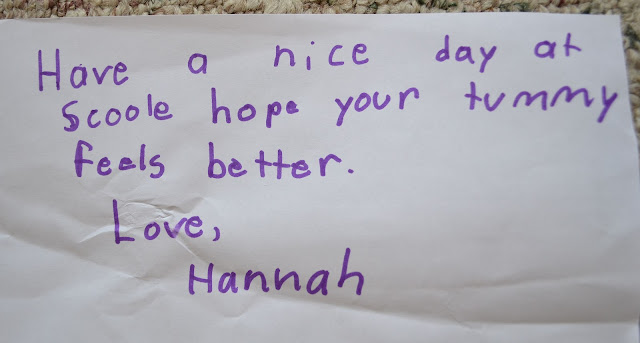 Have a nice day at
Scoole hope your tummy
feels better.
Love,
Hannah